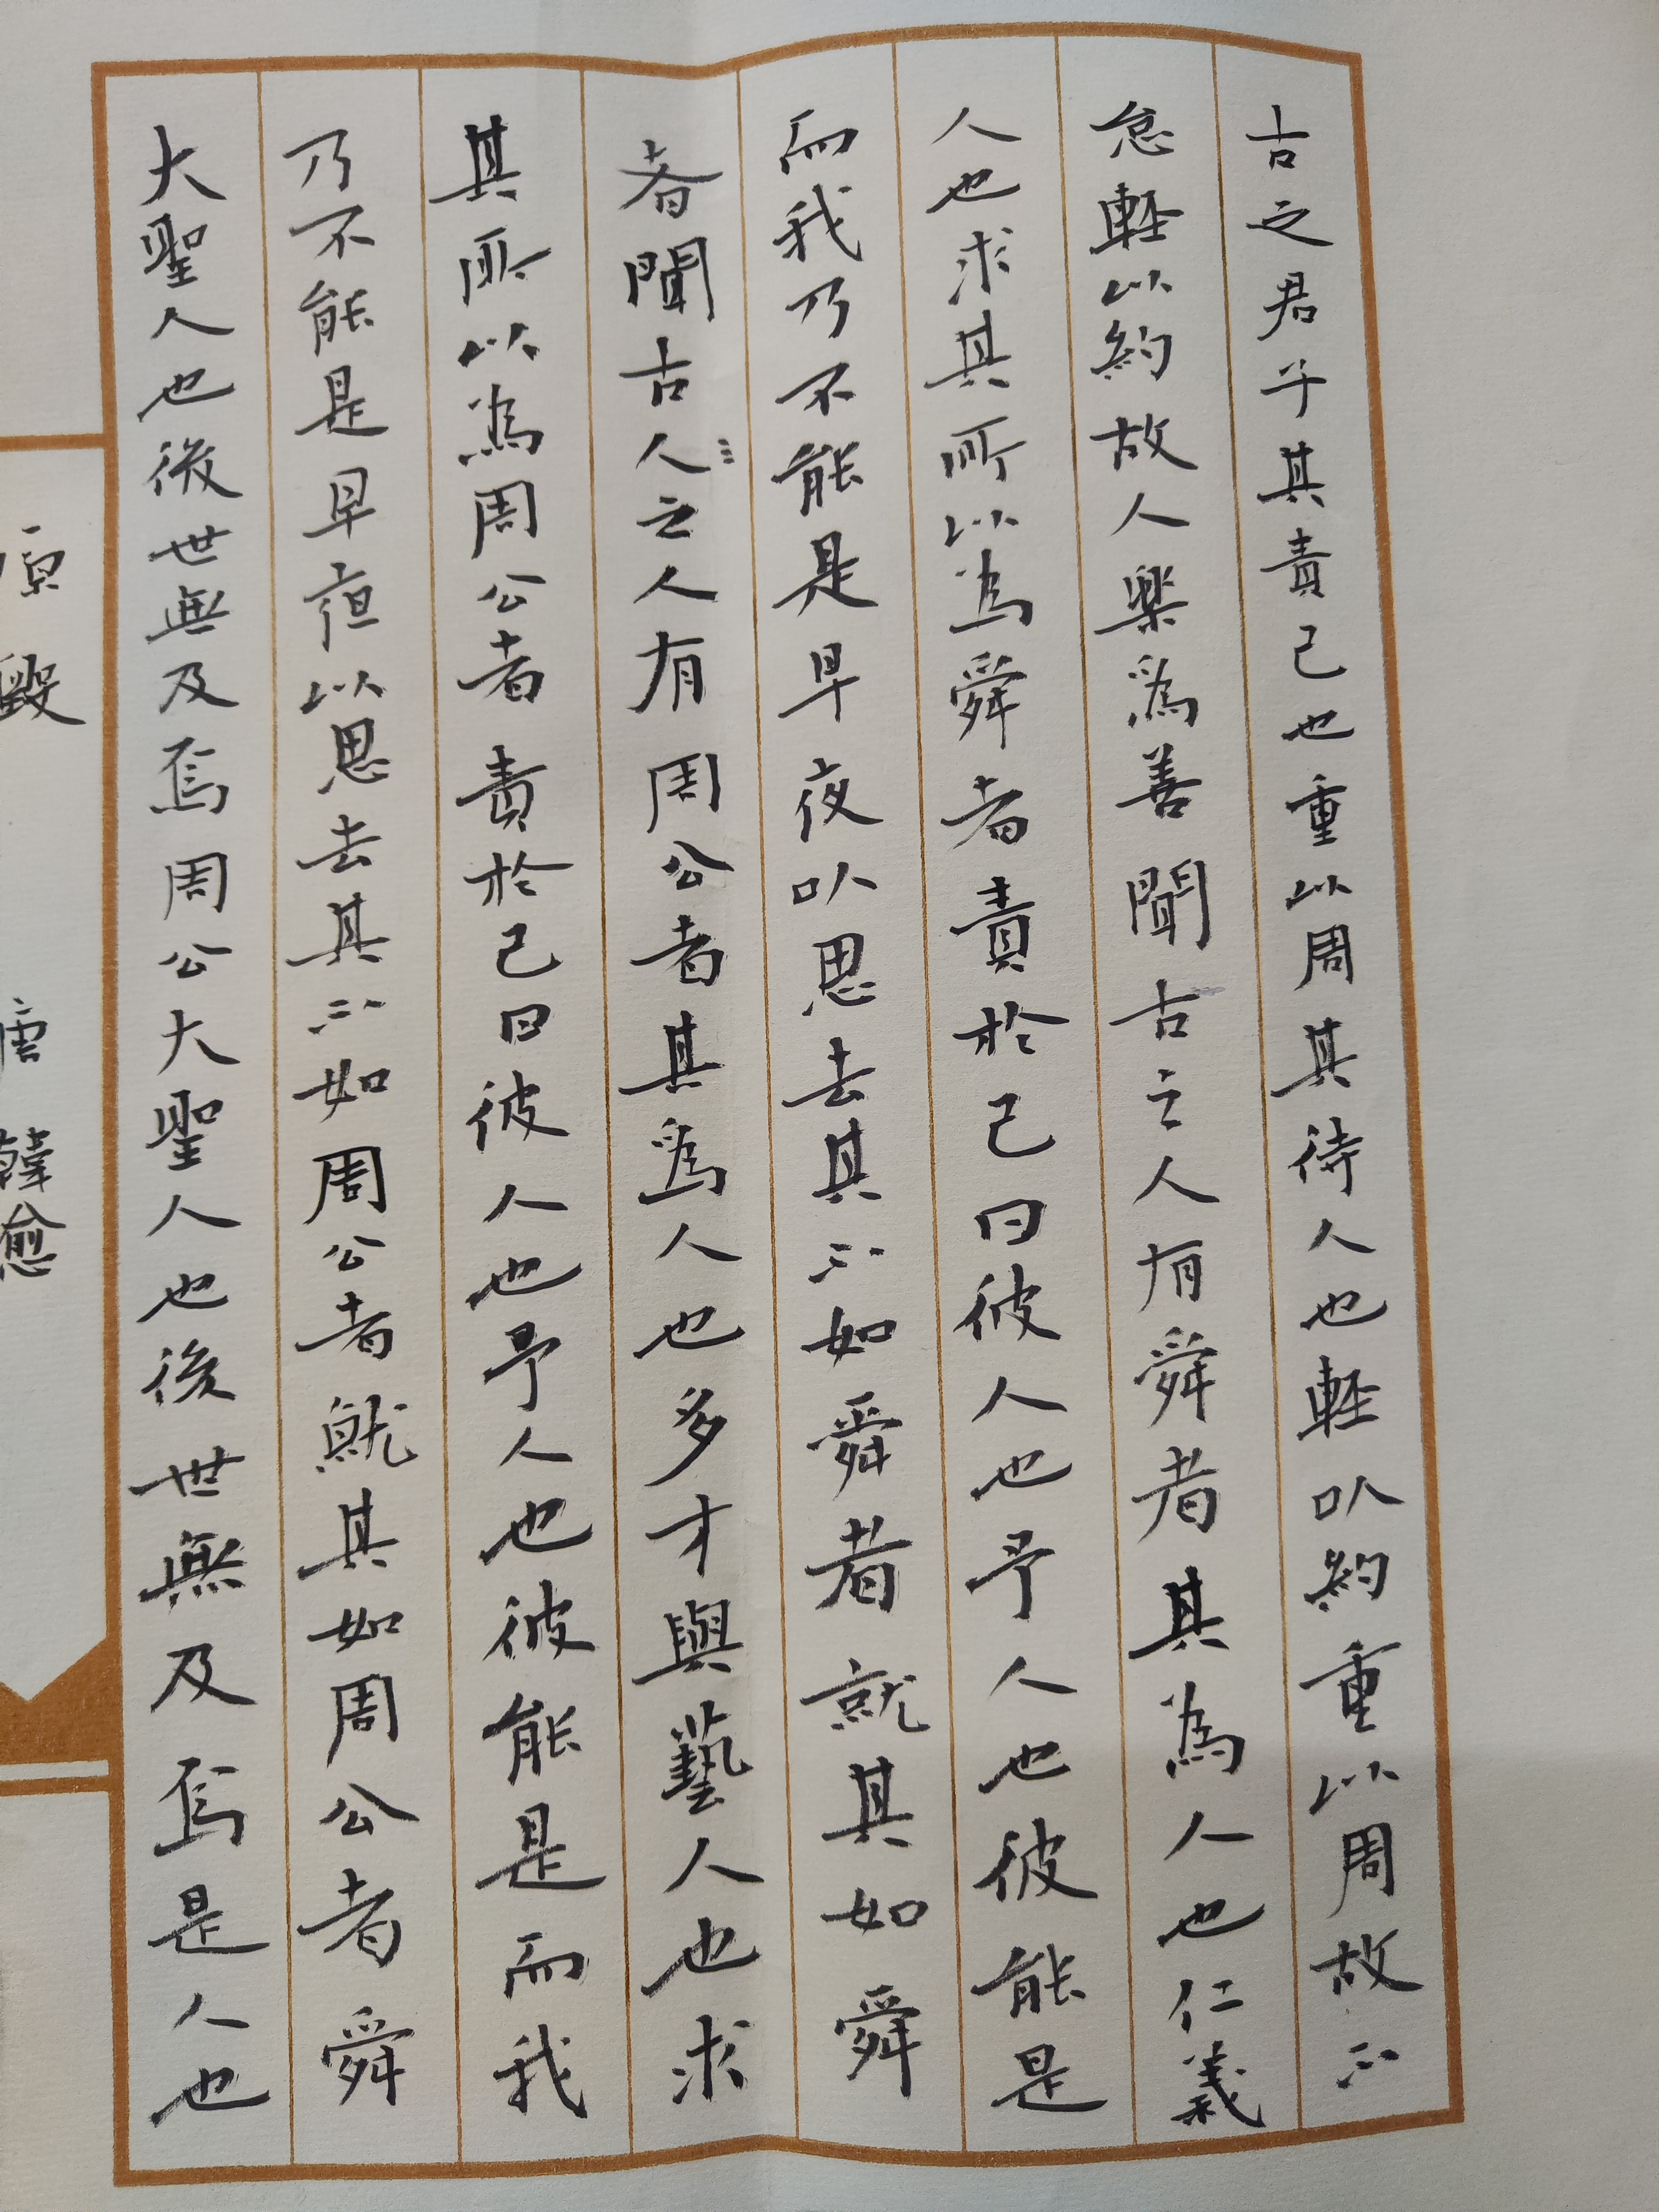 古之君子其責己也重以周其待人也軽以約重以周故不
怠軽以約故人樂為善聞古之人有舜者其為人也仁義
人也求其所以為舜者責於己曰彼人也予人也彼能是
而我乃不能是早夜以思去其不如舜者就其如舜
者聞古人之人有周公者其為人也多才與藝人也求
其所以為周公者責於己曰彼人也予人也彼能是而我
乃不能是早夜以思去其不如周公者就其如周公者舜
大聖人也後世無及焉周公大聖人也後世無及焉是人也
原毀 唐 韓愈